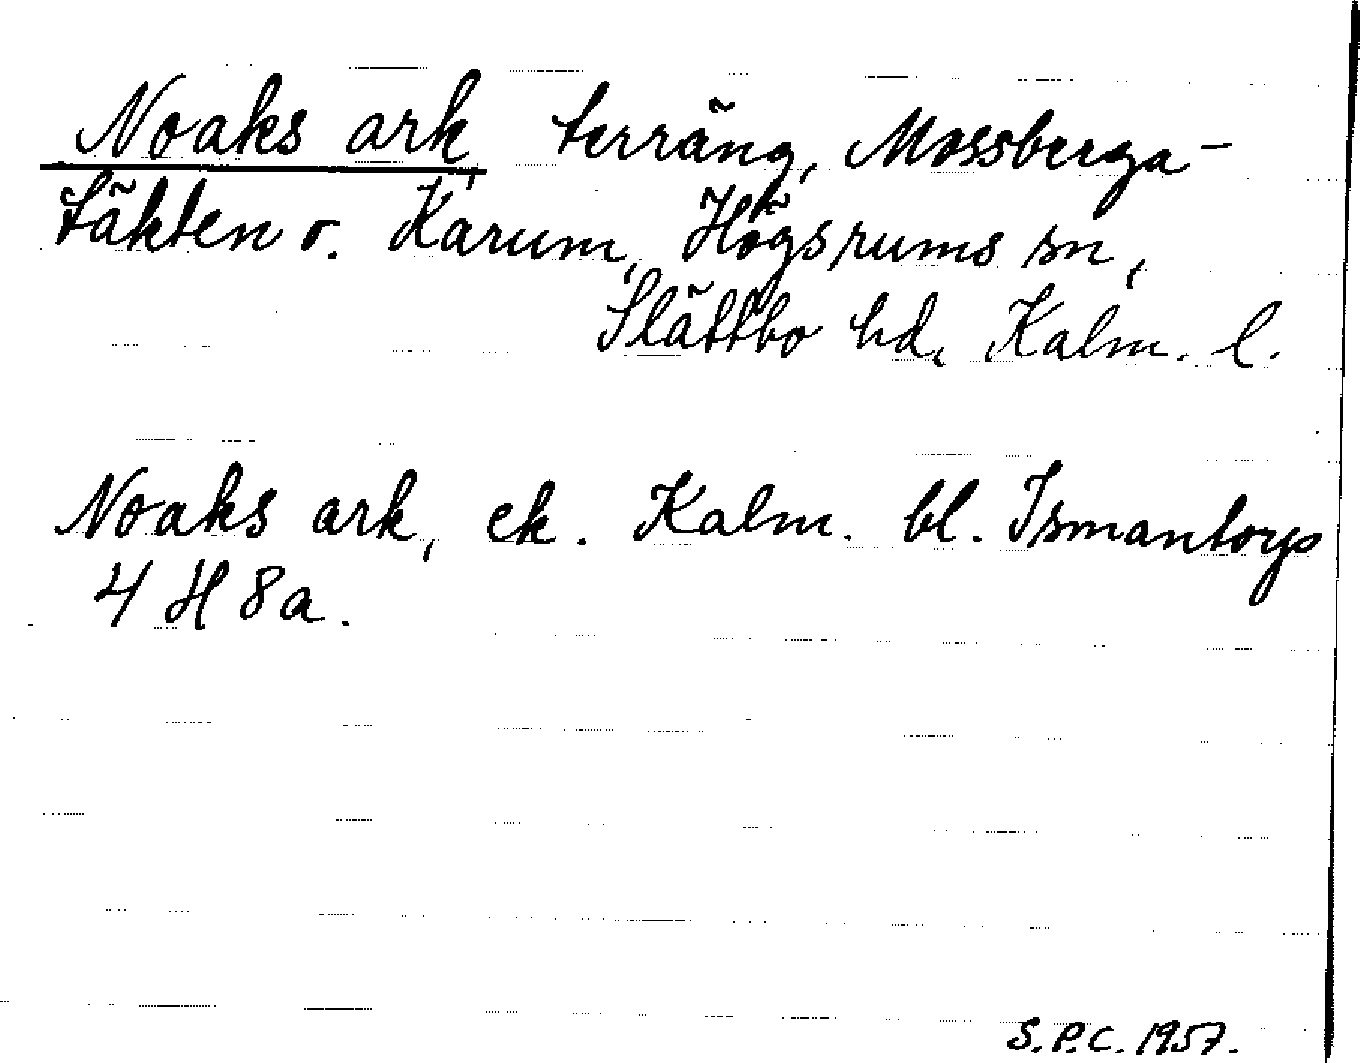 Noaks ark, terräng, Mossberga-
täkten o. Karum, Högsrums sn,
Slättbo hd, Kalm. l.
Noaks ark, ek. Kalm. bl. Ismantorps
4 H 8a.
S.P.C. 1957.